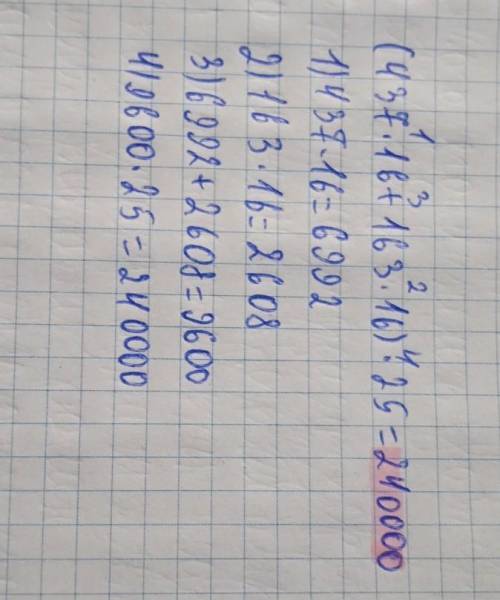 (437·16+163·16)·25=240000
1 3 2 4
1)437·16=6992
2)163·16=2608
3)6992+2608=9600
4)9600·25=240000